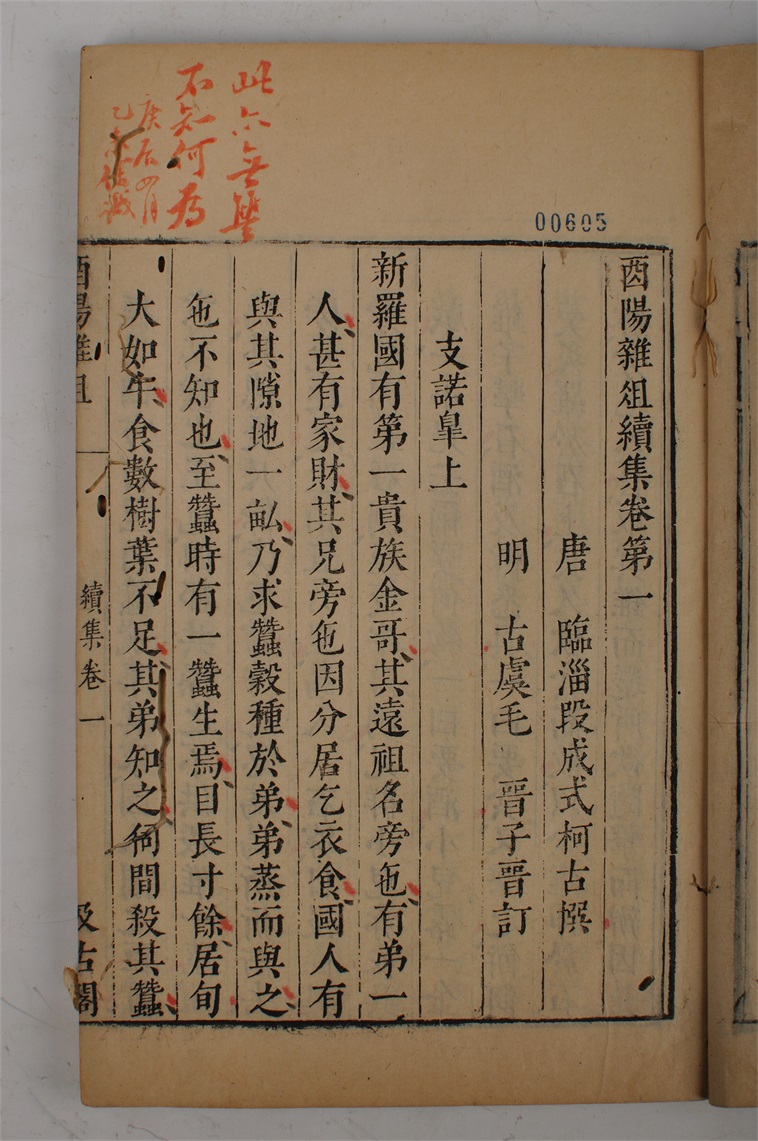 此亦無
不知何为
庚辰四月
00605
酉陽雜俎續集卷第一
唐 臨淄段成式柯古撰
明 古虞毛 晉子晉訂
支諾皐上
新羅國有第一貴族金哥其遠祖名旁㐌有弟一
人甚有家財其兄旁㐌因分居乞衣食國人有
與其隙地一畆乃求蠶穀種於弟弟蒸而與之
㐌不知也至蠶時有一蠶生焉目長寸餘居旬
大如牛食數樹葉不足其弟知之伺間殺其蠶
酉陽雜俎
續集卷一
汲古閣